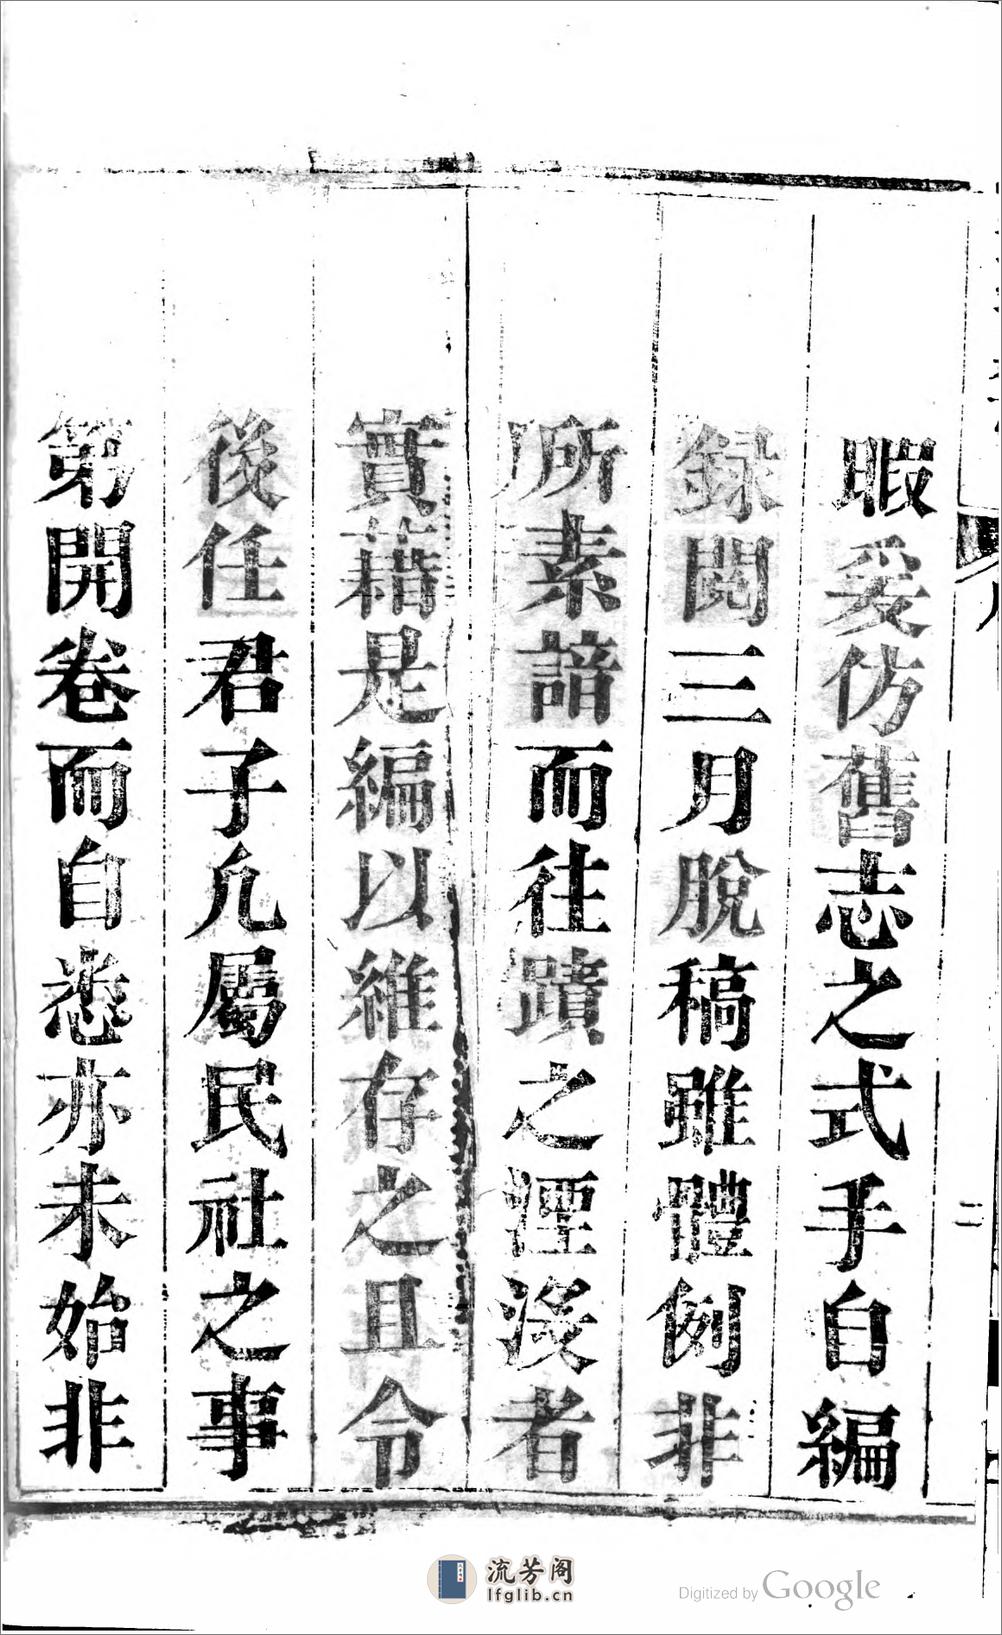 暇爰仿舊志之式手自編
録閱三月脫稿雖體例非
所素諳而往蹟之湮沒者
實藉是編以維存之且令
後任君子凢屬民社之事
第開卷而自悉亦未始非
二
流芳阁
lfglib.cn
Digitized by Google